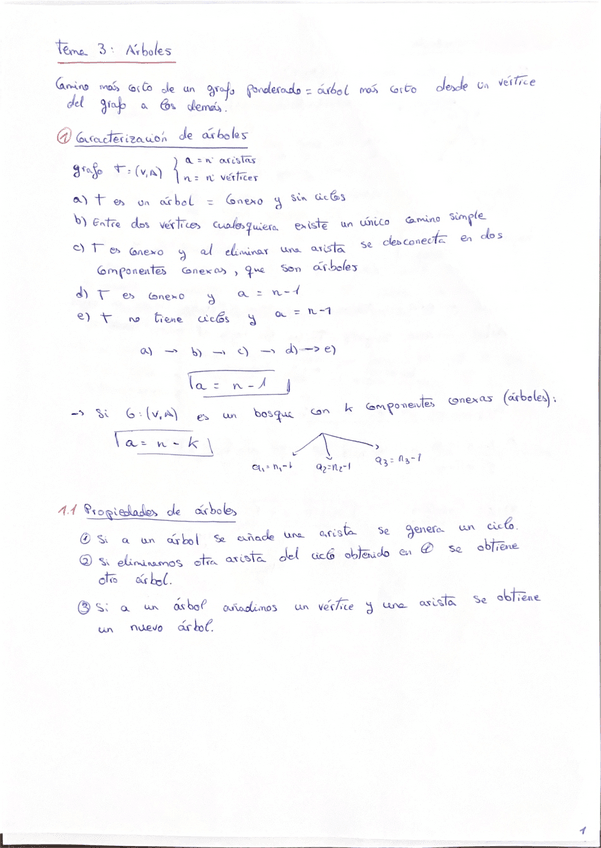 Tema 3: Árboles
Camino más corto de un grafo ponderado = árbol más corto desde un vértice
del grafo a los demás.
① Caracterización de árboles
grafo T = (V, A) { a = nº aristas
n = nº vértices
a) T es un árbol = conexo y sin ciclos
b) Entre dos vértices cualesquiera existe un único camino simple
c) T es conexo y al eliminar una arista se desconecta en dos
componentes conexas, que son árboles
d) T es conexo y a = n-1
e) T no tiene ciclos y a = n-1
a) → b) → c) → d) → e)
a = n-1
→ Si G: (V, A) es un bosque con k componentes conexas (árboles):
a = n - k
a₁=n₁-1 a₂=n₂-1 a₃=n₃-1
1.1 Propiedades de árboles
① Si a un árbol se añade una arista se genera un ciclo.
② Si eliminamos otra arista del ciclo obtenido en ① se obtiene
otro árbol.
③ Si a un árbol añadimos un vértice y una arista se obtiene
un nuevo árbol.
1